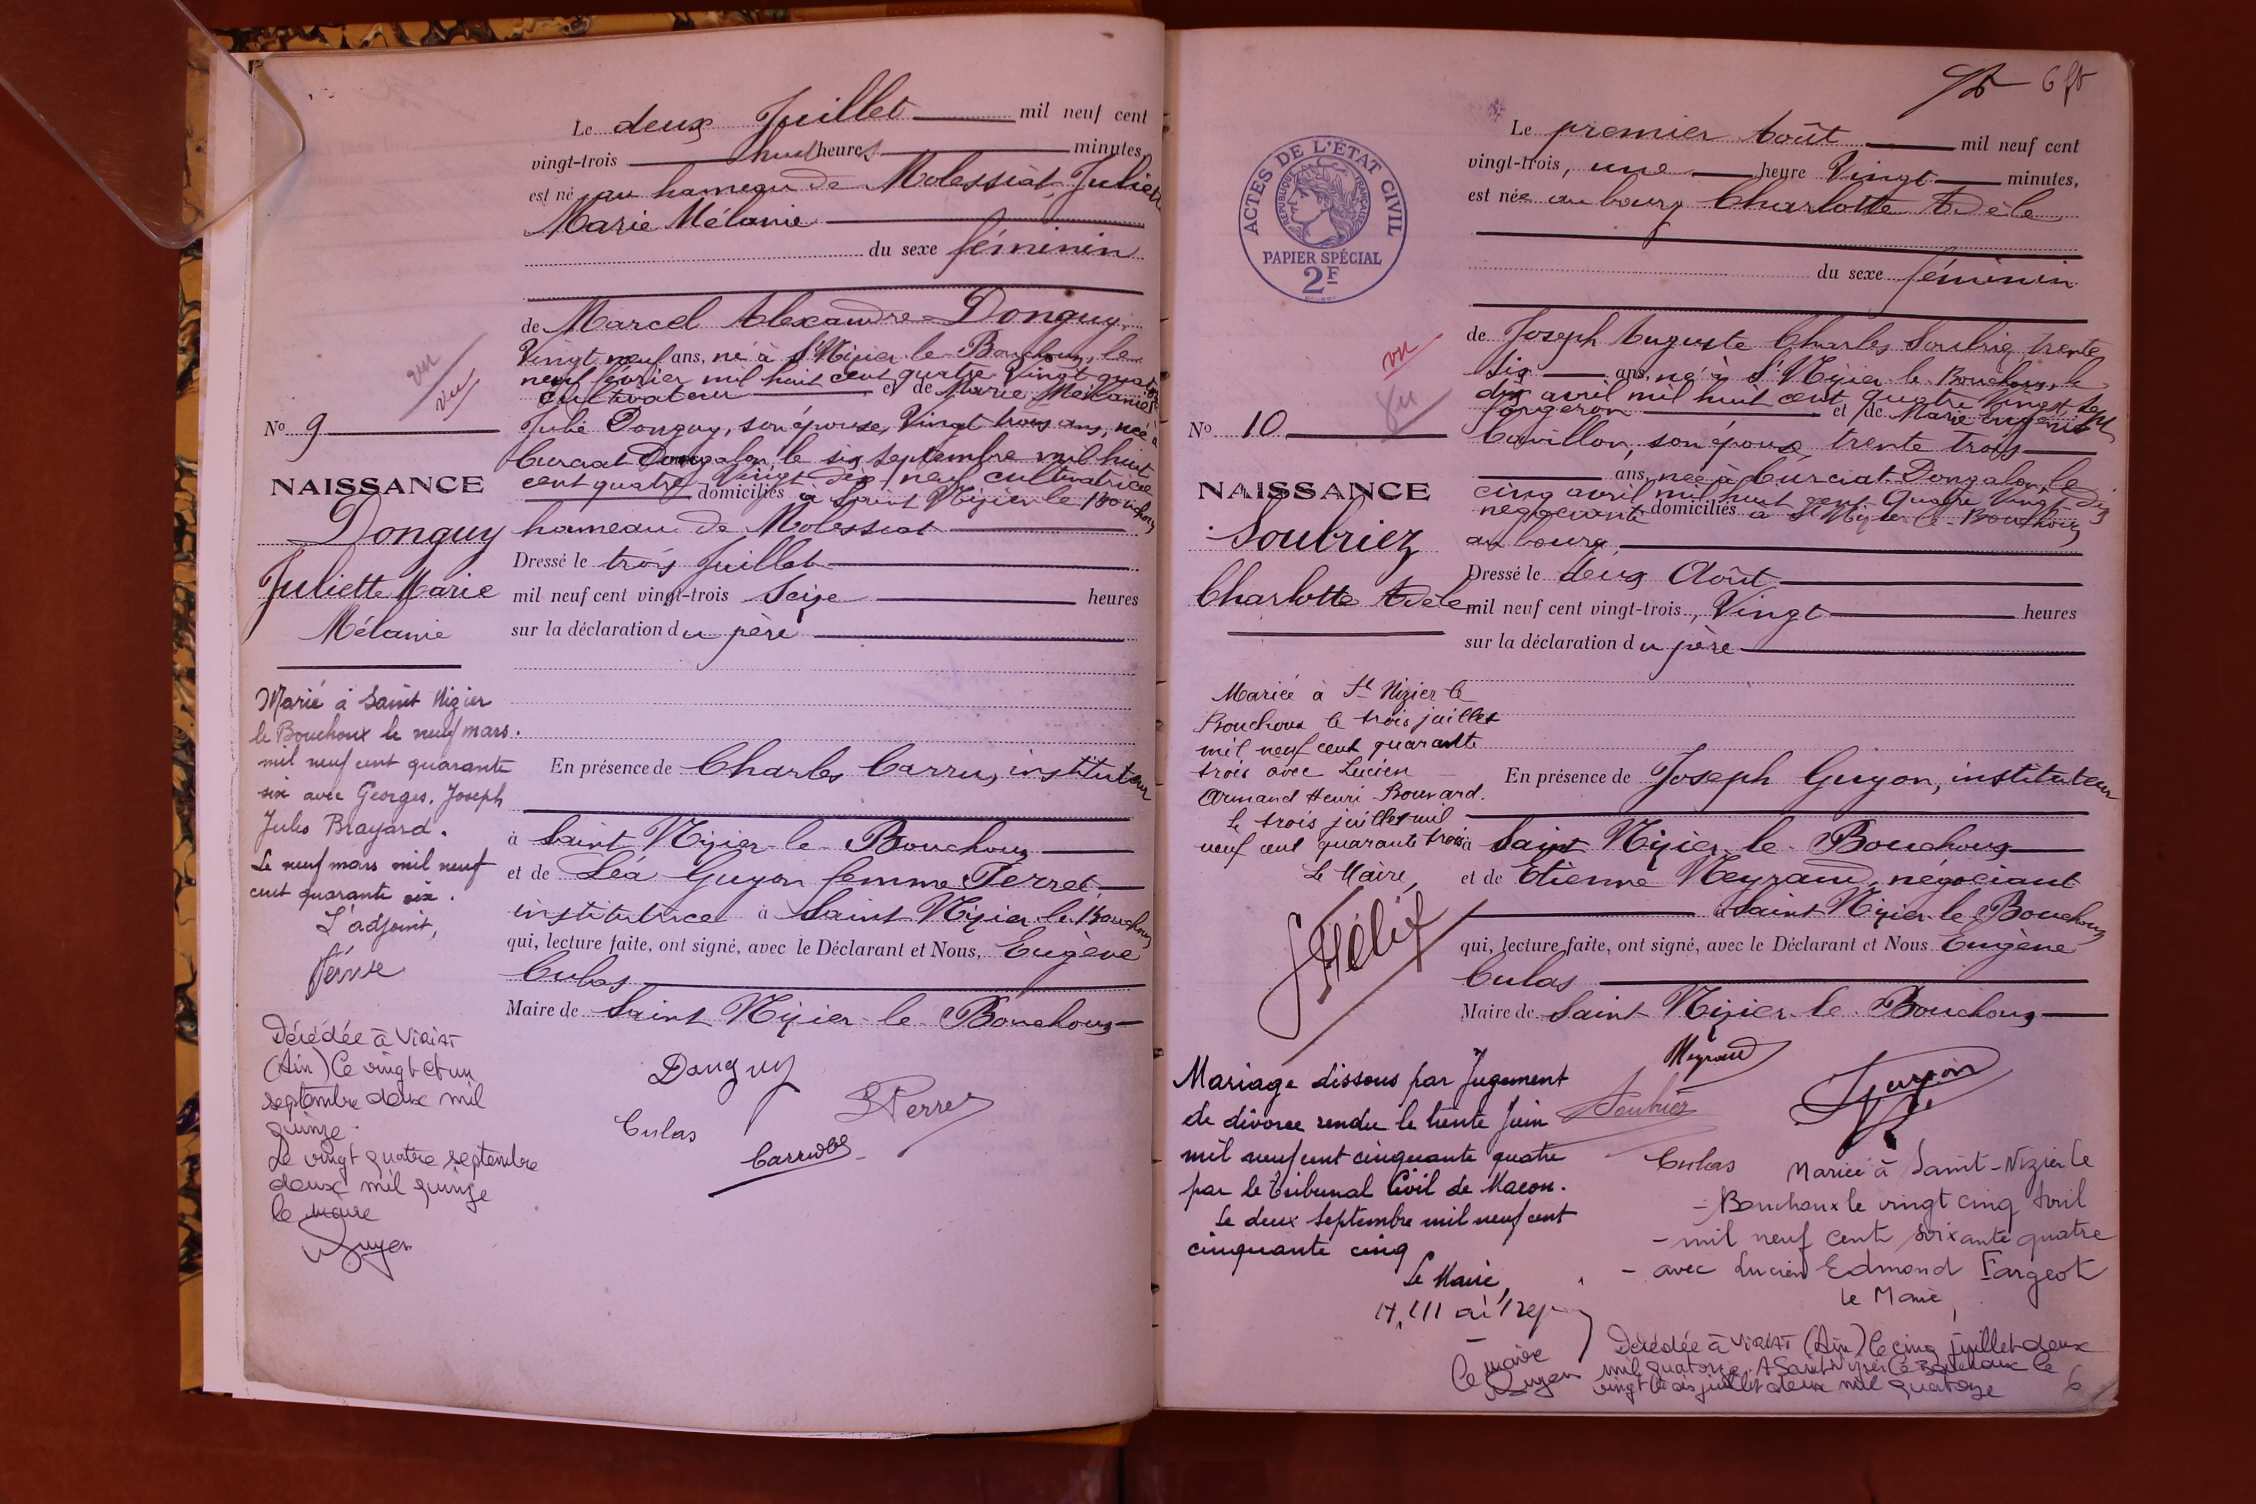 Le deux Juillet mil neuf cent
vingt-trois huit heures minutes,
est né au hameau de Molessiat, Juliette
Marie Mélanie
du sexe féminin
de Marcel Alexandre Donguy,
Vingt neuf ans, né à St Nizier le Bouchoux, le
neuf février mil huit cent quatre vingt quatorze
cultivateur et de Marie Mélanie
Julie Donguy, son épouse, Vingt trois ans, née à
Curciat Dongalon, le six septembre mil huit
cent quatre Vingt dix neuf cultivatrice
domiciliés à Saint Nizier le Bouchoux
hameau de Molessiat
Dressé le trois Juillet
mil neuf cent vingt-trois Seize heures
sur la déclaration du père
En présence de Charles Carru, instituteur
à Saint Nizier le Bouchoux
et de Léa Guyon femme Perret
institutrice à Saint Nizier le Bouchoux
qui, lecture faite, ont signé, avec le Déclarant et Nous, Eugène
Culas
Maire de Saint Nizier le Bouchoux
Donguy
LPerret
Culas
Carru
vu
vu
No 9
NAISSANCE
Donguy
Juliette Marie
Mélanie
Marié à Saint Nizier
le Bouchoux le neuf mars
mil neuf cent quarante
six avec Georges, Joseph
Jules Brayard.
Le neuf mars mil neuf
cent quarante six.
L'adjoint,
Décédée à VIRIAT
(Ain) le vingt et un
septembre deux mil
quinze.
Le vingt quatre septembre
deux mil quinze
le maire
6
Le premier Août mil neuf cent
vingt-trois, une heure Vingt minutes,
est née au bourg Charlotte Adèle
du sexe féminin
de Joseph Auguste Charles Soubriez trente
six ans, né à St Nizier le Bouchoux, le
dix avril mil huit cent quatre Vingt sept
forgeron et de Marie Eugénie
Cavillon, son épouse, trente trois
ans, née à Curciat-Dongalon, le
cinq avril mil huit cent quatre Vingt dix
négociante domiciliés à St Nizier le Bouchoux
au bourg,
Dressé le deux Août
mil neuf cent vingt-trois, Vingt heures
sur la déclaration du père
En présence de Joseph Guyon, instituteur
à Saint Nizier le Bouchoux
et de Etienne Meyraud, négociant
à Saint Nizier le Bouchoux
qui, lecture faite, ont signé, avec le Déclarant et Nous Eugène
Culas
Maire de Saint Nizier le Bouchoux
Meyraud
Soubriez
Guyon
Culas
ACTES DE L'ÉTAT CIVIL
RÉPUBLIQUE FRANÇAISE
PAPIER SPÉCIAL
2F
vu
vu
No 10
NAISSANCE
Soubriez
Charlotte Adèle
Mariée à St Nizier le
Bouchoux le trois juillet
mil neuf cent quarante
trois avec Lucien
Armand Henri Bouvard.
Le trois juillet mil
neuf cent quarante trois
Le Maire,
Mariage dissous par Jugement
de divorce rendu le trente Juin
mil neuf cent cinquante quatre
par le Tribunal Civil de Macon.
Le deux Septembre mil neuf cent
cinquante cinq
Le Maire,
Mariée à Saint-Nizier le
-Bouchoux le vingt cinq Avril
- mil neuf cent soixante quatre
- avec Lucien Edmond Fargeot
Le Maire,
Décédée à VIRIAT (Ain) le cinq juillet deux
mil quatorze. A Saint Nizier le Bouchoux le
vingt trois juillet deux mil quatorze
Le maire
6